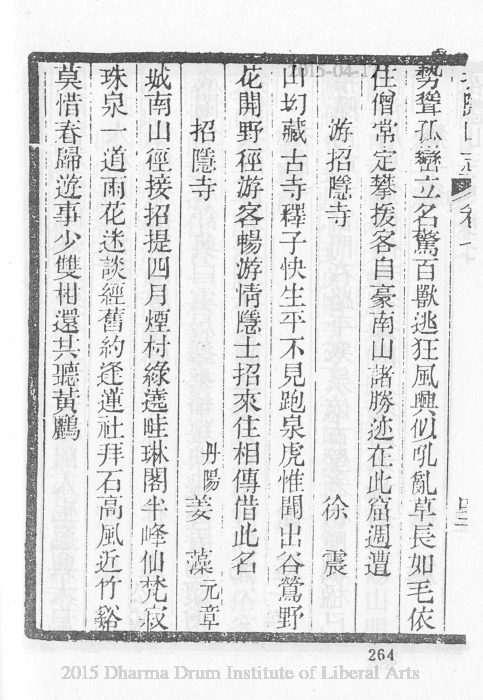 招隱山志 卷十
勢聳孤巒立名驚百獸逃狂風興似吼亂草長如毛依
住僧常定攀援客自豪南山諸勝迹在此窟週遭
游招隱寺 徐震
山幻藏古寺釋子快生平不見跑泉虎惟聞出谷鶯野
花開野徑游客暢游情隱士招來住相傳借此名
招隱寺 丹陽姜藻元章
城南山徑接招提四月煙村綠遶畦琳閣半峰仙梵寂
珠泉一道雨花迷談經舊約逢蓮社拜石高風近竹谿
莫惜春歸遊事少雙柑還共聽黃鸝
264
2015 Dharma Drum Institute of Liberal Arts